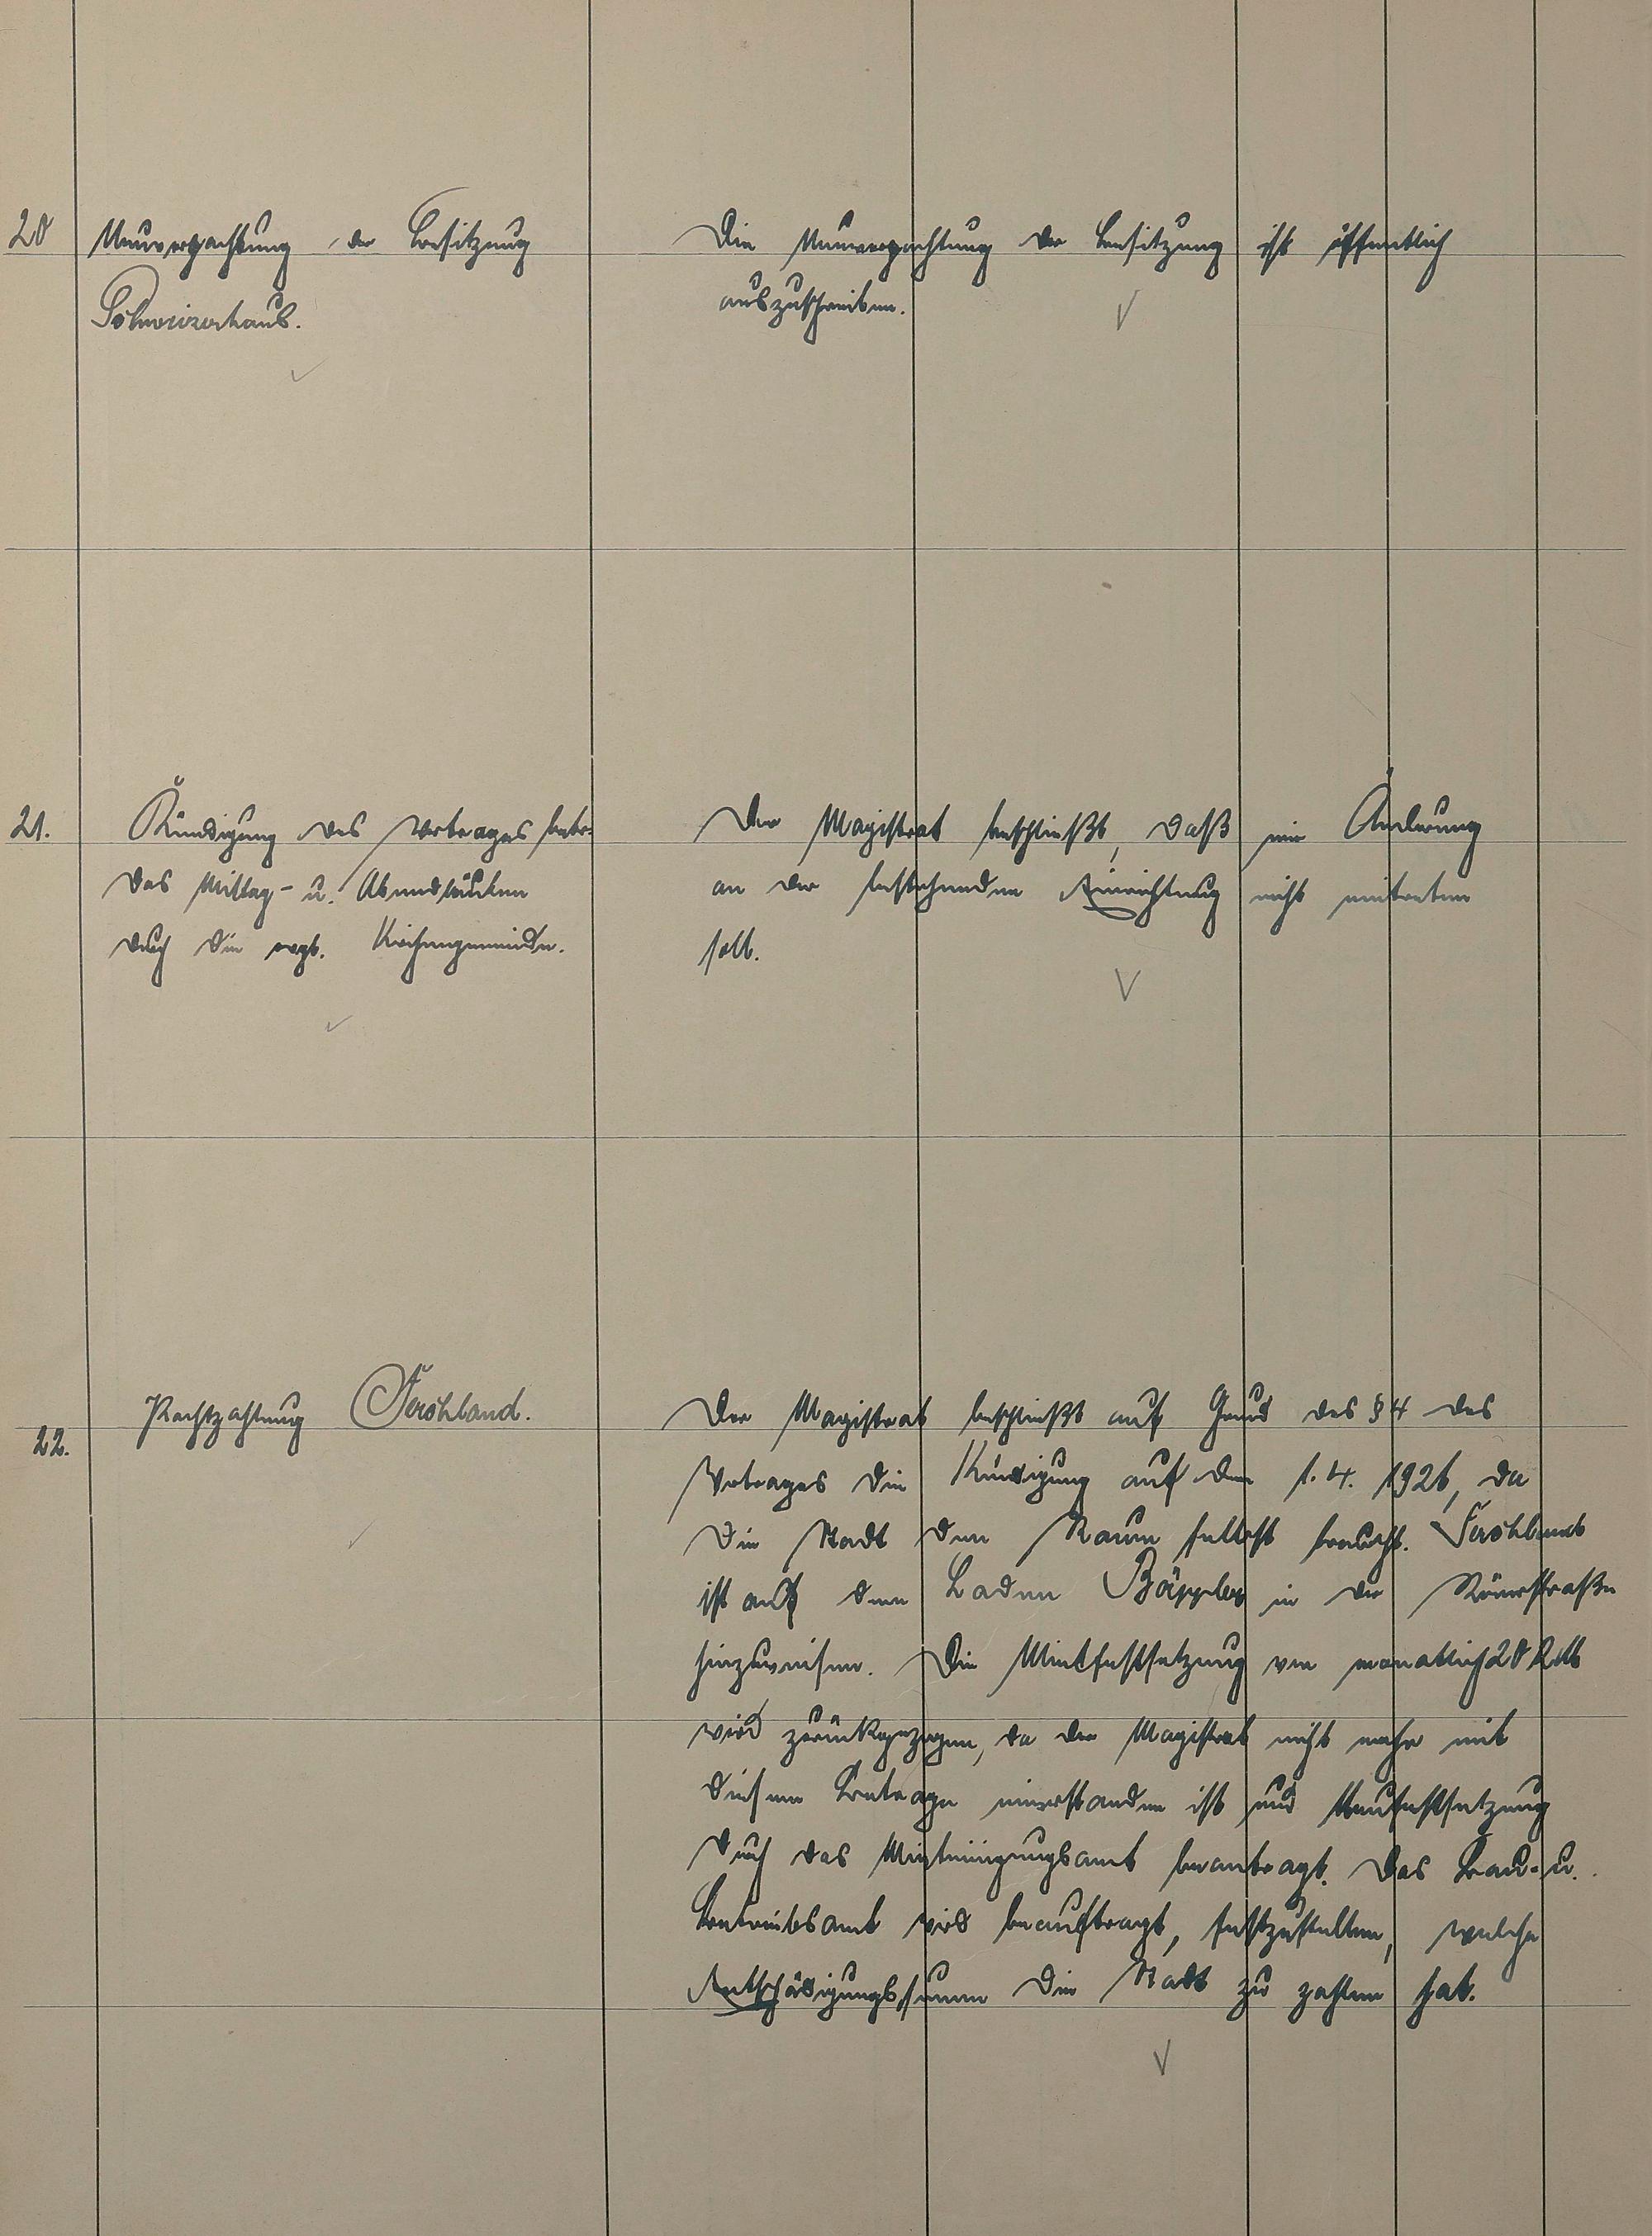 20 Neuverpachtung der Besitzung
Schweizerhaus.
Die Neuverpachtung der Besitzung ist öffentlich
auszuschreiben.
21. Kündigung des Vertrages betr.
das Mittag- u. Abendläuten
durch die evgl. Kirchengemeinde.
Der Magistrat beschließt, daß eine Änderung
an der bestehenden Einrichtung nicht eintreten
soll.
22. Pachtzahlung Ferohland.
Der Magistrat beschließt auf Grund des § 4 des
Vertrages die Kündigung auf den 1. 4. 1926, da
die Stadt den Raum selbst braucht. Ferohland
ist auf den Laden Bäppler in der Römerstraße
hinzuweisen. Die Mietfestsetzung von monatlich 20 RM
wird zurückgezogen, da der Magistrat nicht mehr mit
diesem Betrage einverstanden ist und Neufestsetzung
durch das Mieteinigungsamt beantragt. Das Bau- u.
Betriebsamt wird beauftragt, festzustellen, welche
Entschädigungssumme die Stadt zu zahlen hat.